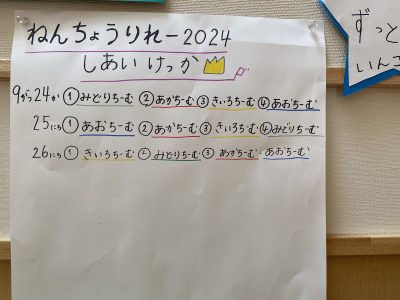 ねんちょうりれー2024
しあいけっか
9がつ24か ①みどりちーむ ②あかちーむ ③きいろちーむ ④あおちーむ
25にち ①あおちーむ ②あかちーむ ③きいろちーむ ④みどりちーむ
26にち ①きいろちーむ ②みどりちーむ ③あかちーむ・あおちーむ
ずっと
いんこ